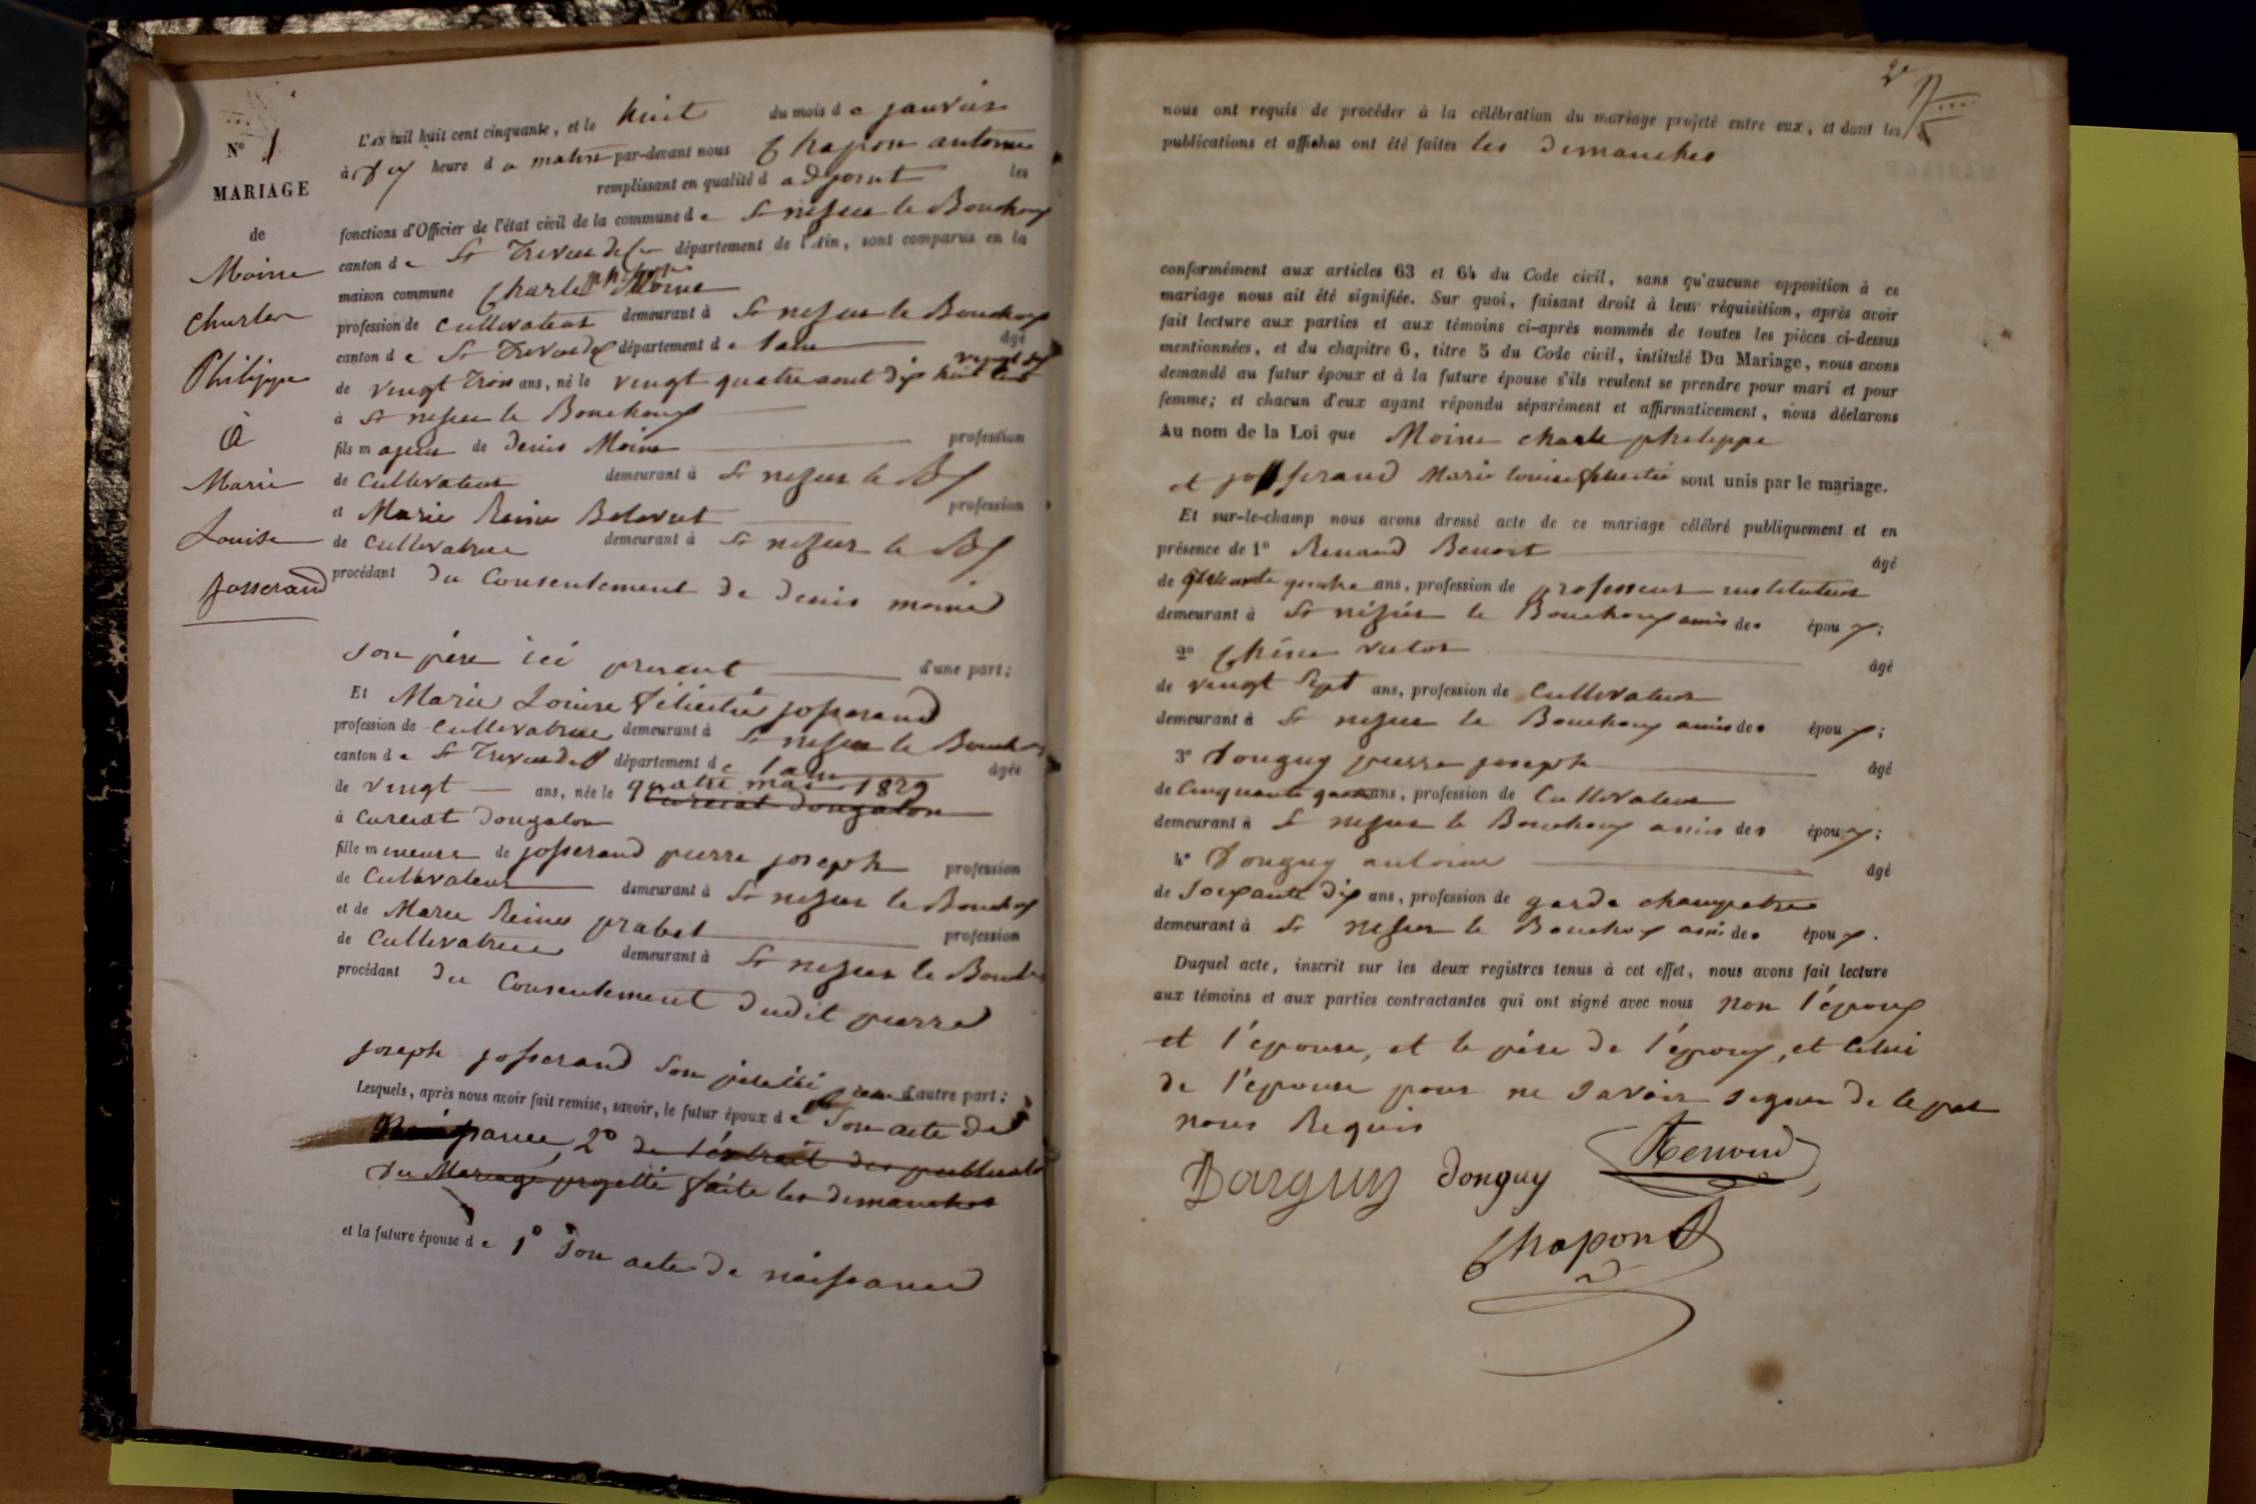 N° 1
MARIAGE
de
Moine
Charles
Philippe
à
Marie
Louise
Josserand
L'AN mil huit cent cinquante, et le huit du mois de janvier
à dix heure du matin par-devant nous Chapon antoine
remplissant en qualité d adjoint les
fonctions d'Officier de l'état civil de la commune de St nizier le Bouchoux
canton de St Trivier de département de l'Ain, sont comparus en la
maison commune Charle philippe Moine
profession de cultivateur demeurant à St nizier le Bouchoux
canton de St Trivier de département de l'ain âgé
de vingt trois ans, né le vingt quatre aout dix huit cent vingt six
à St nizier le Bouchoux
fils majeur de Denis Moine profession
de Cultivateur demeurant à St nizier le Bx
et Marie Reine profession
de cultivatrice demeurant à St nizier le Bx
procédant du Consentement de denis moine
son père ici present d'une part;
Et Marie Louise félicitée josserand
profession de cultivatrice demeurant à St nizier le Bouchoux
canton de St Trivier de département de l'ain âgée
de vingt ans, née le quatre mai 1829
Curciat dongalon
à Curciat Dongalon
fille mineure de josserand pierre joseph profession
de Cultivateur demeurant à St nizier le Bouchoux
et de Marie Reine prabel profession
de cultivatrice demeurant à St nizier le Bouchoux
procédant du Consentement dudit pierre
joseph josserand son père ici present d'autre part;
Lesquels, après nous avoir fait remise, savoir, le futur époux de 1° Son acte de
naissance, 2° de l'éxtrait des publications
du Mariage projetté faite les dimanches
et la future épouse de 1° Son acte de naissance
2e
nous ont requis de procéder à la célébration du mariage projeté entre eux, et dont les
publications et affiches ont été faites les dimanches
conformément aux articles 63 et 64 du Code civil, sans qu'aucune opposition à ce
mariage nous ait été signifiée. Sur quoi, faisant droit à leur réquisition, après avoir
fait lecture aux parties et aux témoins ci-après nommés de toutes les pièces ci-dessus
mentionnées, et du chapitre 6, titre 5 du Code civil, intitulé Du Mariage, nous avons
demandé au futur époux et à la future épouse s'ils veulent se prendre pour mari et pour
femme; et chacun d'eux ayant répondu séparément et affirmativement, nous déclarons
Au nom de la Loi que Moine charle philippe
et josserand Marie louise félicitée sont unis par le mariage.
Et sur-le-champ nous avons dressé acte de ce mariage célébré publiquement et en
présence de 1° Renaud Benoit âgé
de quatre ans, profession de professeur instituteur
demeurant à St nizier le Bouchoux amis des époux;
2° Chêne victor âgé
de vingt Sept ans, profession de Cultivateur
demeurant à St nizier le Bouchoux amis des époux;
3° Donguy pierre joseph âgé
de Cinquante ans, profession de Cultivateur
demeurant à St nizier le Bouchoux amis des époux;
4° Donguy antoine âgé
de Soixante dix ans, profession de garde champetre
demeurant à St nizier le Bouchoux amis des époux.
Duquel acte, inscrit sur les deux registres tenus à cet effet, nous avons fait lecture
aux témoins et aux parties contractantes qui ont signé avec nous non l'époux
et l'épouse, et le père de l'époux, et celui
de l'épouse pour ne savoir signer de le par
nous Requis
Donguy Renoud
Chapon A